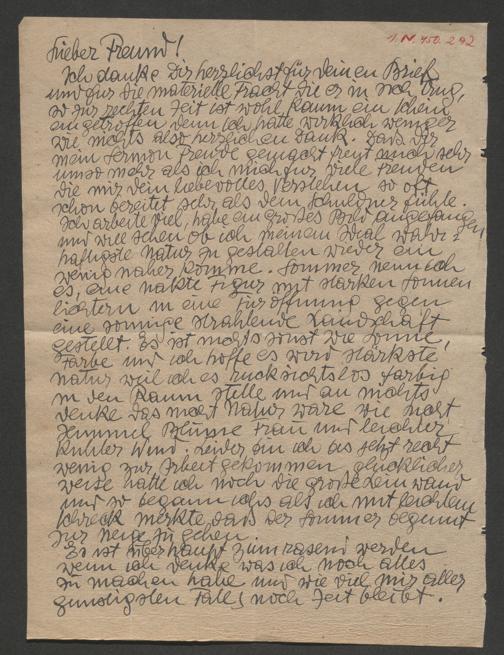 I.N. 450.292
Lieber Freund!
Ich danke Dir herzlichst für Deinen Brief
und für die materielle Fracht die er in sich trug,
so zur rechten Zeit ist wohl kaum ein Schein
eingetroffen denn ich hatte wirklich weniger
wie nichts also herzlichen Dank. Daß Dir
mein Sermon Freude gemacht freut mich sehr
umso mehr als ich mich für viele Freuden
die mir Dein liebevolles Verstehen so oft
schon bereitet sehr als Dein Schuldner fühle.
Ich arbeite viel, habe ein großes Bild angefangen
und will sehen ob ich meinem Ideal wahr=
haftigste Natur zu gestalten wieder ein
wenig näher komme. Sommer nenn ich
es, eine nakte Figur mit starken Sonnen
lichtern in eine Türöffnung gegen
eine sonnige strahlende Landschaft
gestellt. Es ist nichts sonst wie Sonne,
Farbe und ich hoffe es wird stärkste
Natur weil ich es rücksichtslos farbig
in den Raum stelle und an nichts
denke das nicht Natur wäre wie nicht
Himmel Blume Frau und leichter
kühler Wind. Leider bin ich bis jetzt recht
wenig zur Arbeit gekommen, glücklicher
weise hatte ich noch die große Leinwand
und so begann ichs als ich mit leichtem
Schreck merkte daß der Sommer beginnt
zur Neige zu gehen.
Es ist überhaupt zum rasend werden
wenn ich denke was ich noch alles
zu machen habe und wie viel mir aller
günstigsten Falls noch Zeit bleibt.